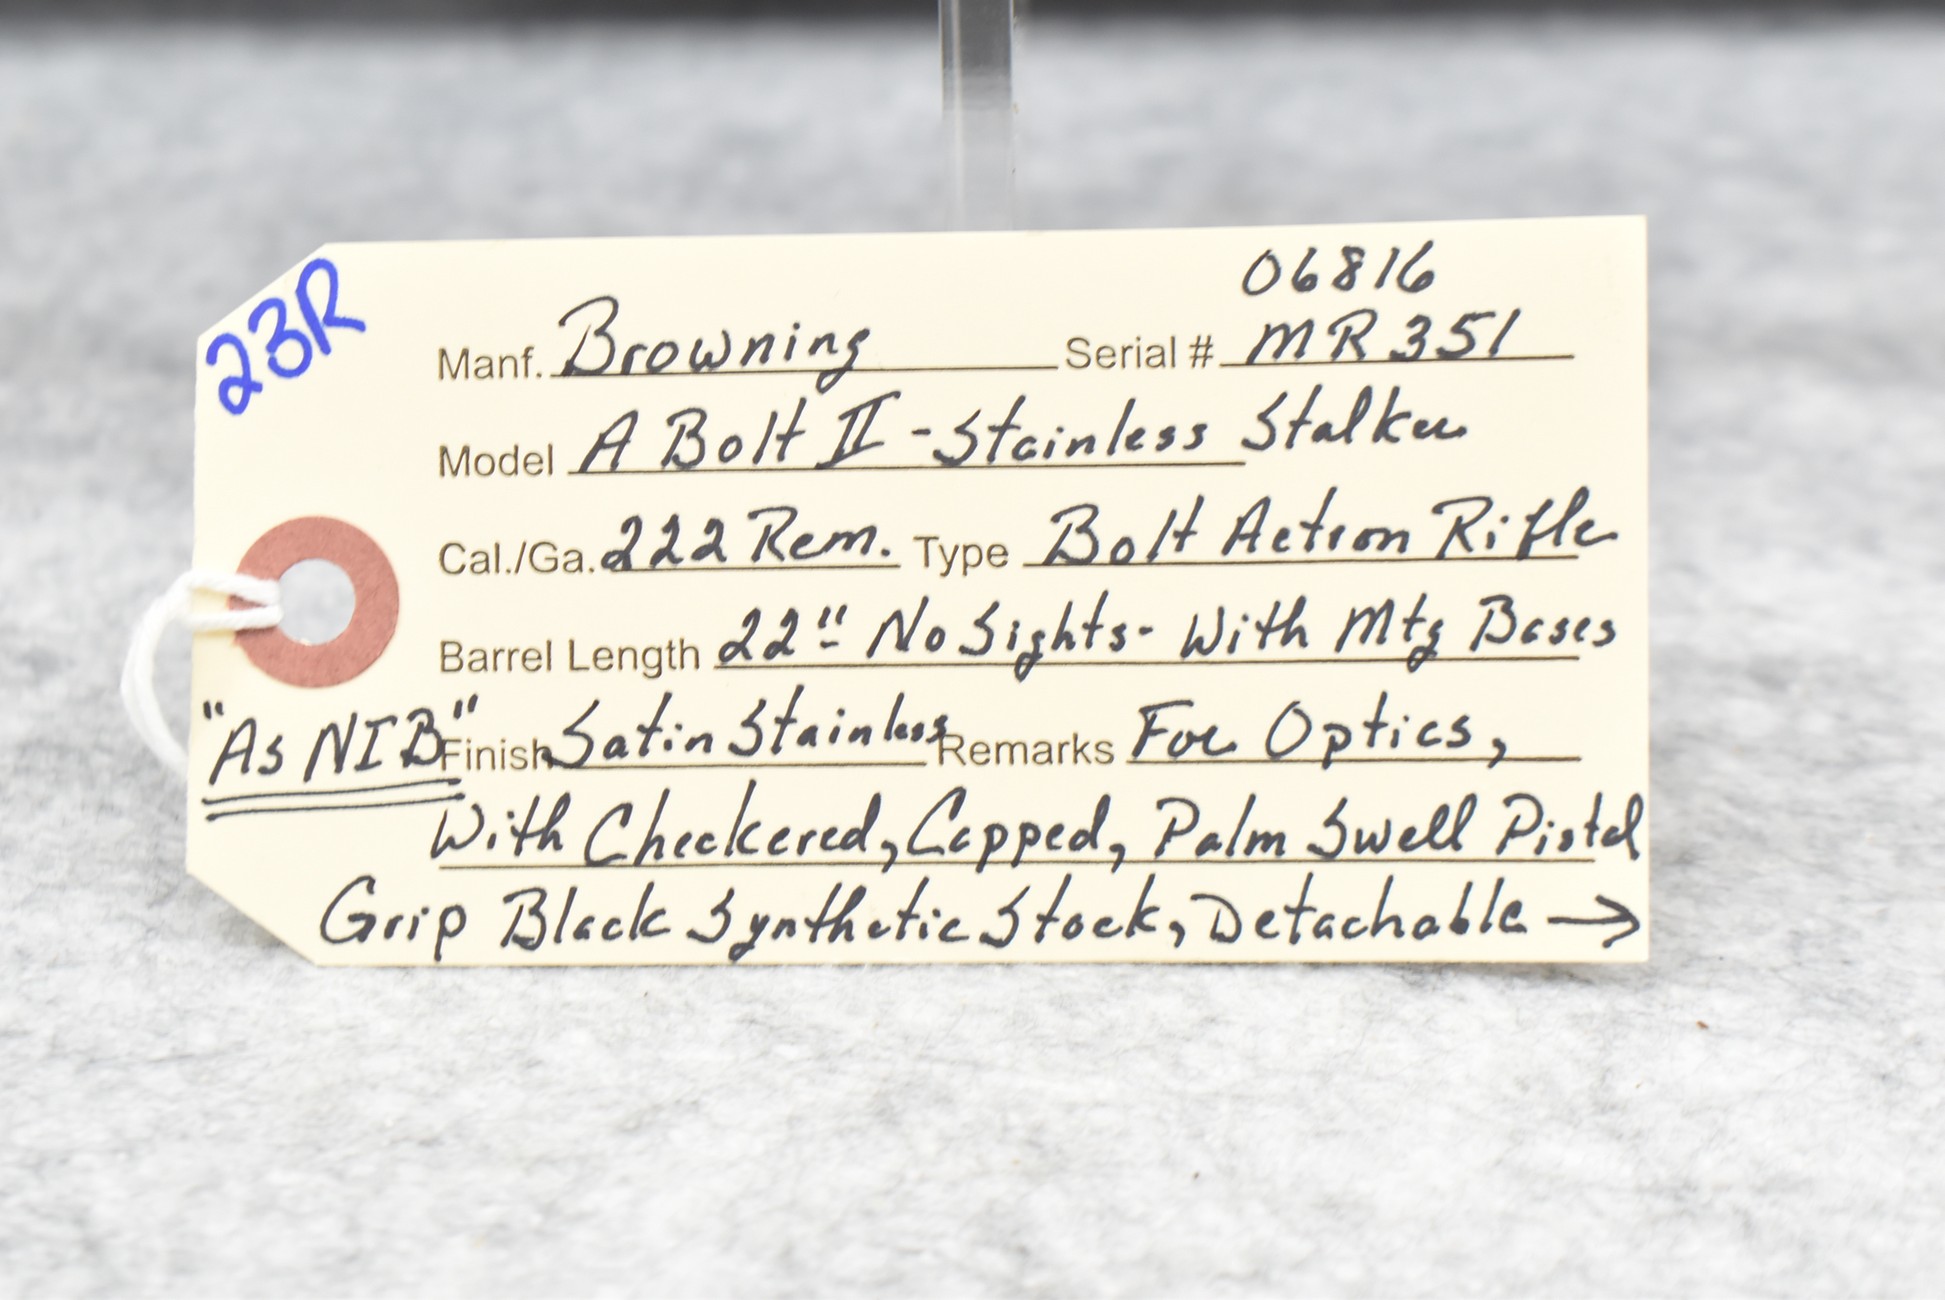 23R
06816
Manf. Browning Serial # MR351
Model A Bolt II - Stainless Stalker
Cal./Ga. 222 Rem. Type Bolt Action Rifle
Barrel Length 22" No Sights - With Mtg Bases
"As NIB" Finish Satin Stainless Remarks For Optics,
With Checkered, Capped, Palm Swell Pistol
Grip Black Synthetic Stock, Detachable →